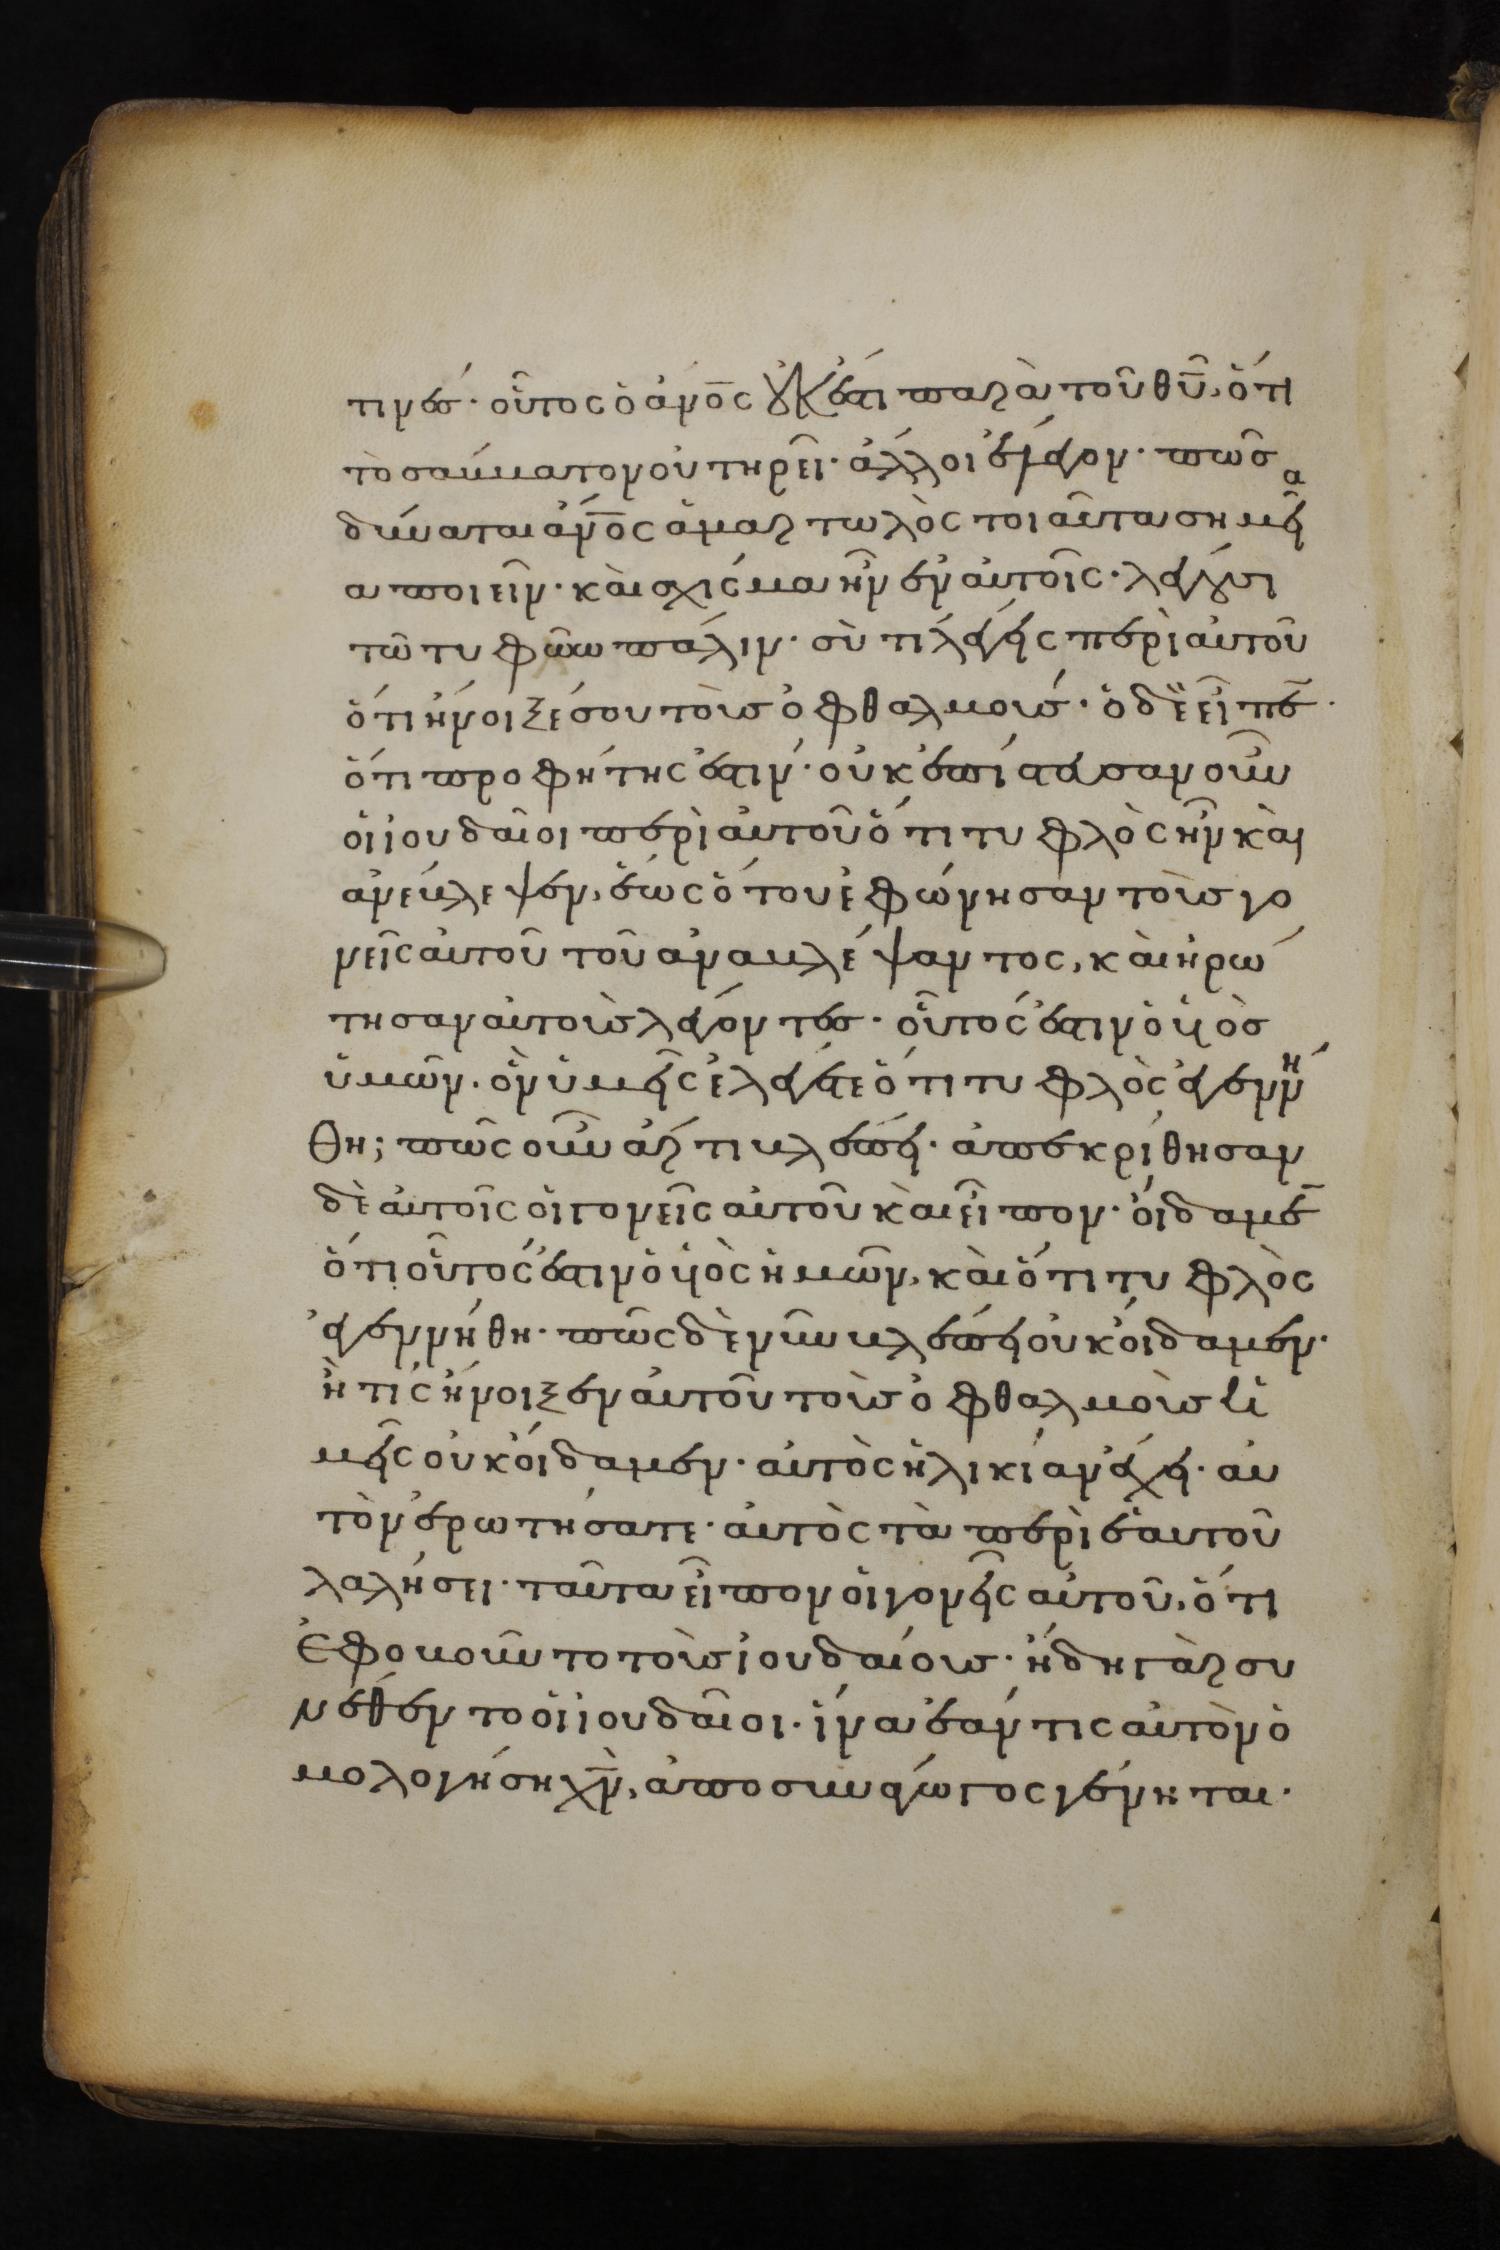 τινές· οὗτος ὁ ἀν̅ο̅ς οὐκ ἔστι παρὰ τοῦ θ̅υ̅, ὅτι
τὸ σάββατον οὐ τηρεῖ· ἄλλοι ἔλεγον· πῶσ
δύναται ἀν̅ο̅ς ἁμαρτωλὸς τοιαῦτα σημεῖα
α ποιεῖν· καὶ σχίσμα ἦν ἐν αὐτοῖς· λέγουσι
τῶ τυφλῶ πάλιν· σὺ τί λέγεις περὶ αὐτοῦ
ὅτι ἤνοιξέ σου τοὺσ ὀφθαλμούσ· ὁ δὲ εἶπε̅·
ὅτι προφήτης ἐστίν· οὐκ ἐπίστευσαν οὖν
οἱ ἰουδαῖοι περὶ αὐτοῦ ὅτι τυφλὸς ἦν καὶ
ἀνέβλεψεν, ἕως ὅτου ἐφώνησαν τοὺσ γο
νεῖς αὐτοῦ τοῦ ἀναβλέψαντος, καὶ ἠρώ
τησαν αὐτοὺσ λέγοντεσ· οὗτός ἐστιν ὁ ὑιὸσ
ὑμῶν· ὃν ὑμεῖς ἐλέγετε ὅτι τυφλὸς ἐγεννή
θη; πῶς οὖν ἄρτι βλέπει· ἀπεκρίθησαν
δὲ αὐτοῖς οἱ γονεῖς αὐτοῦ καὶ εἶπον· οἴδαμε̅
ὅτι οὗτός ἐστιν ὁ ὑιὸς ἡμῶν, καὶ ὅτι τυφλὸς
ἐγεννήθη· πῶς δὲ νῦν βλέπει οὐκ οἴδαμεν·
ἢ τίς ἤνοιξεν αὐτοῦ τοὺσ ὀφθαλμοὺσ ἡ
μεῖς οὐκ οἴδαμεν· αὐτὸς ἡλικίαν ἔχει· αὐ
τὸν ἐρωτήσατε· αὐτὸς τὰ περὶ ἑαυτοῦ
λαλήσει· ταῦτα εἶπον οἱ γονεῖς αὐτοῦ, ὅτι
ἐφοβοῦντο τοὺσ ἰουδαίουσ· ἤδη γὰρ συ
νέθεντο οἱ ἰουδαῖοι· ἵνα ἐάν τις αὐτὸν ὁ
μολογήση χ̅ν̅, ἀποσυνάγωγος γένηται·